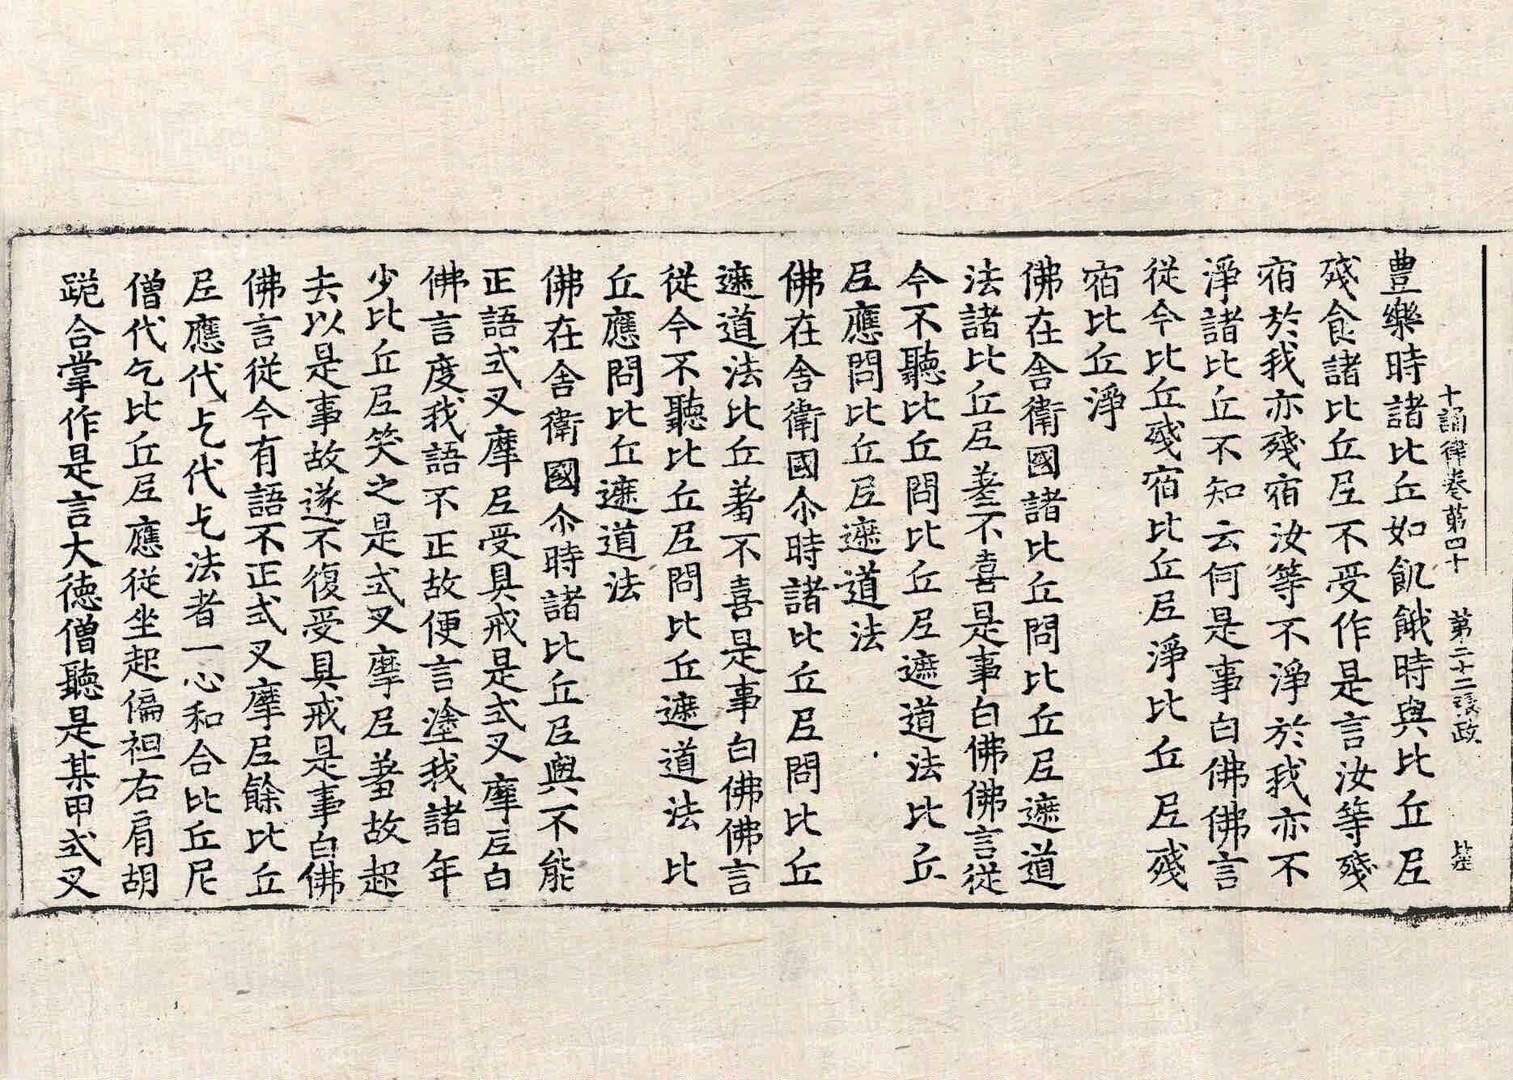 十誦律卷第四十 第二十二張 政
豊樂時諸比丘如飢餓時與比丘尼
殘食諸比丘尼不受作是言汝等殘
宿於我亦殘宿汝等不淨於我亦不
淨諸比丘不知云何是事白佛佛言
從今比丘殘宿比丘尼淨比丘尼殘
宿比丘淨
佛在舍衛國諸比丘問比丘尼遮道
法諸比丘尼羞不喜是事白佛佛言從
今不聽比丘問比丘尼遮道法比丘
尼應問比丘尼遮道法
佛在舍衛國尒時諸比丘尼問比丘
遮道法比丘羞不喜是事白佛佛言
從今不聽比丘尼問比丘遮道法比
丘應問比丘遮道法
佛在舍衛國尒時諸比丘尼與不能
正語式叉摩尼受具戒是式叉摩尼白
佛言度我語不正故便言塗我諸年
少比丘尼笑之是式叉摩尼羞故起
去以是事故遂不復受具戒是事白佛
佛言從今有語不正式叉摩尼餘比丘
尼應代乞代乞法者一心和合比丘尼
僧代乞比丘尼應從坐起偏袒右肩胡
跪合掌作是言大德僧聽是某甲式叉